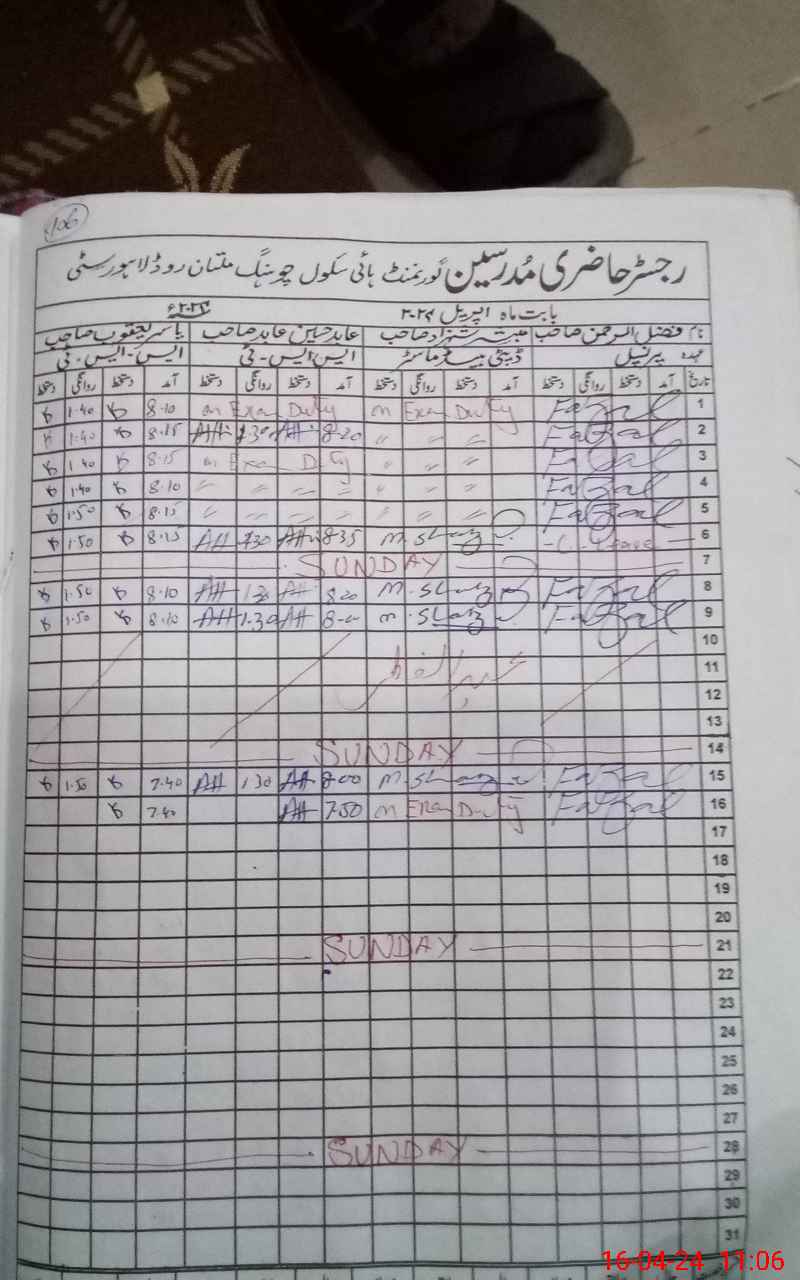 106
رجسٹر حاضری مُدرسین گورنمنٹ ہائی سکول چوہنگ ملتان روڈ لاہور سٹی
بابت ماہ اپریل ۲۰۲۴ ۲۰۲۴ء
نام فضل الرحمن صاحب مبشر شہزاد صاحب عابد حسین عابد صاحب یاسر یعقوب صاحب
عہدہ پرنسپل ڈپٹی ہیڈ ماسٹر ایس ایس - ٹی ایس - ایس - ٹی
تاریخ آمد دستخط روانگی دستخط آمد دستخط روانگی دستخط آمد دستخط روانگی دستخط آمد دستخط روانگی دستخط
1.40 8.10 on Exam Duty on Exam Duty Fazal 1
1.40 8.15 AH 1.30 AH 8-20 〃 〃 〃 Fazal 2
1.40 8.15 on Exam Duty 〃 〃 〃 Fazal 3
1.40 8.10 〃 〃 〃 〃 〃 〃 〃 Fazal 4
1.50 8.15 〃 〃 〃 〃 〃 〃 〃 Fazal 5
1.50 8.15 AH 1.30 AH 8.35 6
SUNDAY 7
1.50 8.10 AH 1.30 AH 8.20 Fazal 8
1.50 8.10 AH 1.30 AH Fazal 9
10
عید الفطر 11
12
13
SUNDAY 14
1.50 7.40 AH 1.30 AH 8.00 Fazal 15
7.40 AH 7.50 on Exam Duty Fazal 16
17
18
19
20
SUNDAY 21
22
23
24
25
26
27
SUNDAY 28
29
30
31
16-04-24 11:06